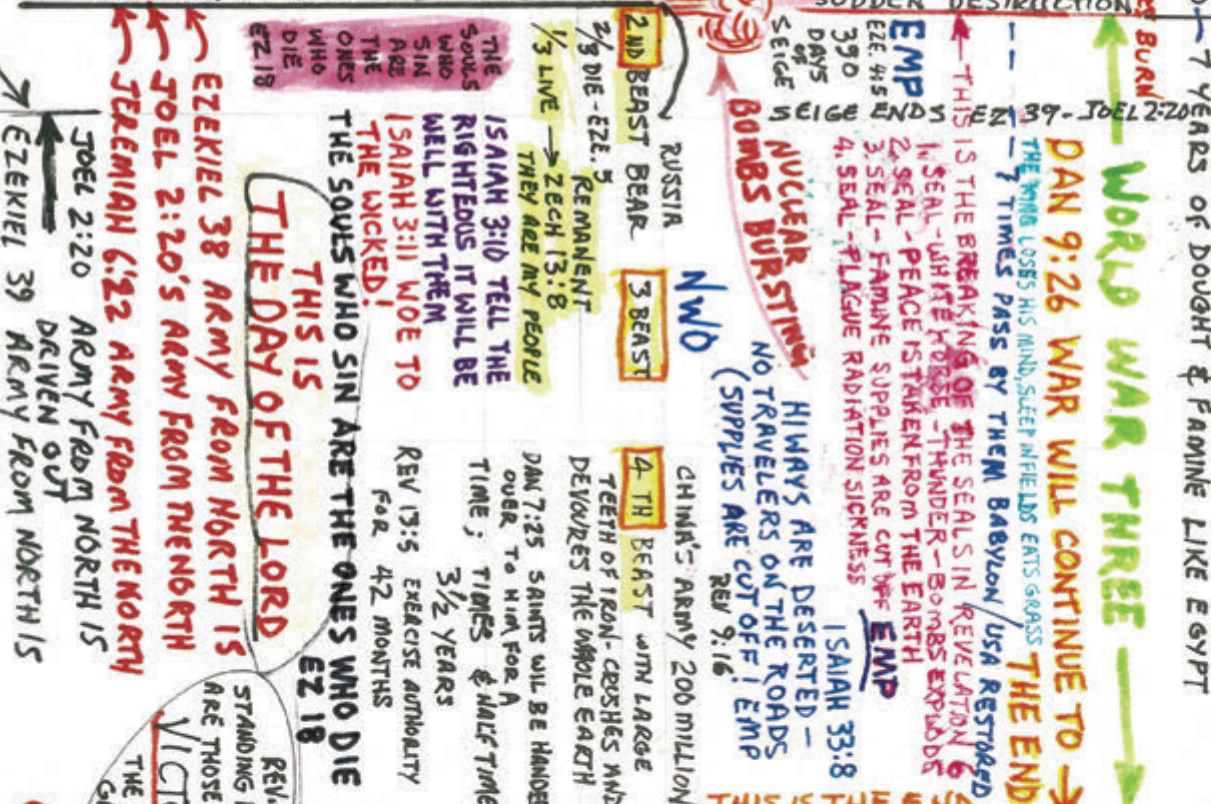 7 YEARS OF DOUGHT & FAMINE LIKE EGYPT
SUDDEN DESTRUCTION
BURN
WORLD WAR THREE
DAN 9:26 WAR WILL CONTINUE TO
THE END
LOSES HIS MIND, SLEEP IN FIELDS EATS GRASS
7 TIMES PASS BY THEM BABYLON/USA RESTORED
THIS IS THE BREAKING OF THE SEALS IN REVELATION 6
1. SEAL - WHITE HORSE - THUNDER - BOMBS EXPLODE
2. SEAL - PEACE IS TAKEN FROM THE EARTH
3. SEAL - FAMINE SUPPLIES ARE CUT OFF EMP
4. SEAL - PLAGUE RADIATION SICKNESS
SEIGE ENDS EZ 39 - JOEL 2:20
EMP
390
DAYS
OF
SEIGE
ISAIAH 33:8
HIWAYS ARE DESERTED -
NO TRAVELERS ON THE ROADS
(SUPPLIES ARE CUT OFF! EMP
NUCLEAR
BOMBS BURSTING
NWO
REV 9:16
CHINA'S ARMY 200 MILLION
RUSSIA
2ND BEAST BEAR
3 BEAST
4 TH BEAST WITH LARGE
TEETH OF IRON - CRUSHES AND
DEVOURES THE WHOLE EARTH
2/3 DIE - EZE. 5
REMANENT
1/3 LIVE → ZECH 13:8
THEY ARE MY PEOPLE
DAN 7:25 SAINTS WIL BE HANDED
OVER TO HIM FOR A
TIME; TIMES & HALF TIME
3 1/2 YEARS
REV 13:5 EXERCISE AUTHORITY
FOR 42 MONTHS
ISAIAH 3:10 TELL THE
RIGHTEOUS IT WILL BE
WELL WITH THEM
ISAIAH 3:11 WOE TO
THE WICKED!
THE
SOULS
WHO
SIN
ARE
THE
ONES
WHO
DIE
EZ 18
THE SOULS WHO SIN ARE THE ONES WHO DIE
EZ 18
THIS IS
THE DAY OF THE LORD
EZEKIEL 38 ARMY FROM NORTH IS
JOEL 2:20'S ARMY FROM THE NORTH
JEREMIAH 6:22 ARMY FROM THE NORTH
JOEL 2:20 ARMY FROM NORTH IS
DRIVEN OUT
EZEKIEL 39 ARMY FROM NORTH IS
REV.
STANDING
ARE THOSE
THE